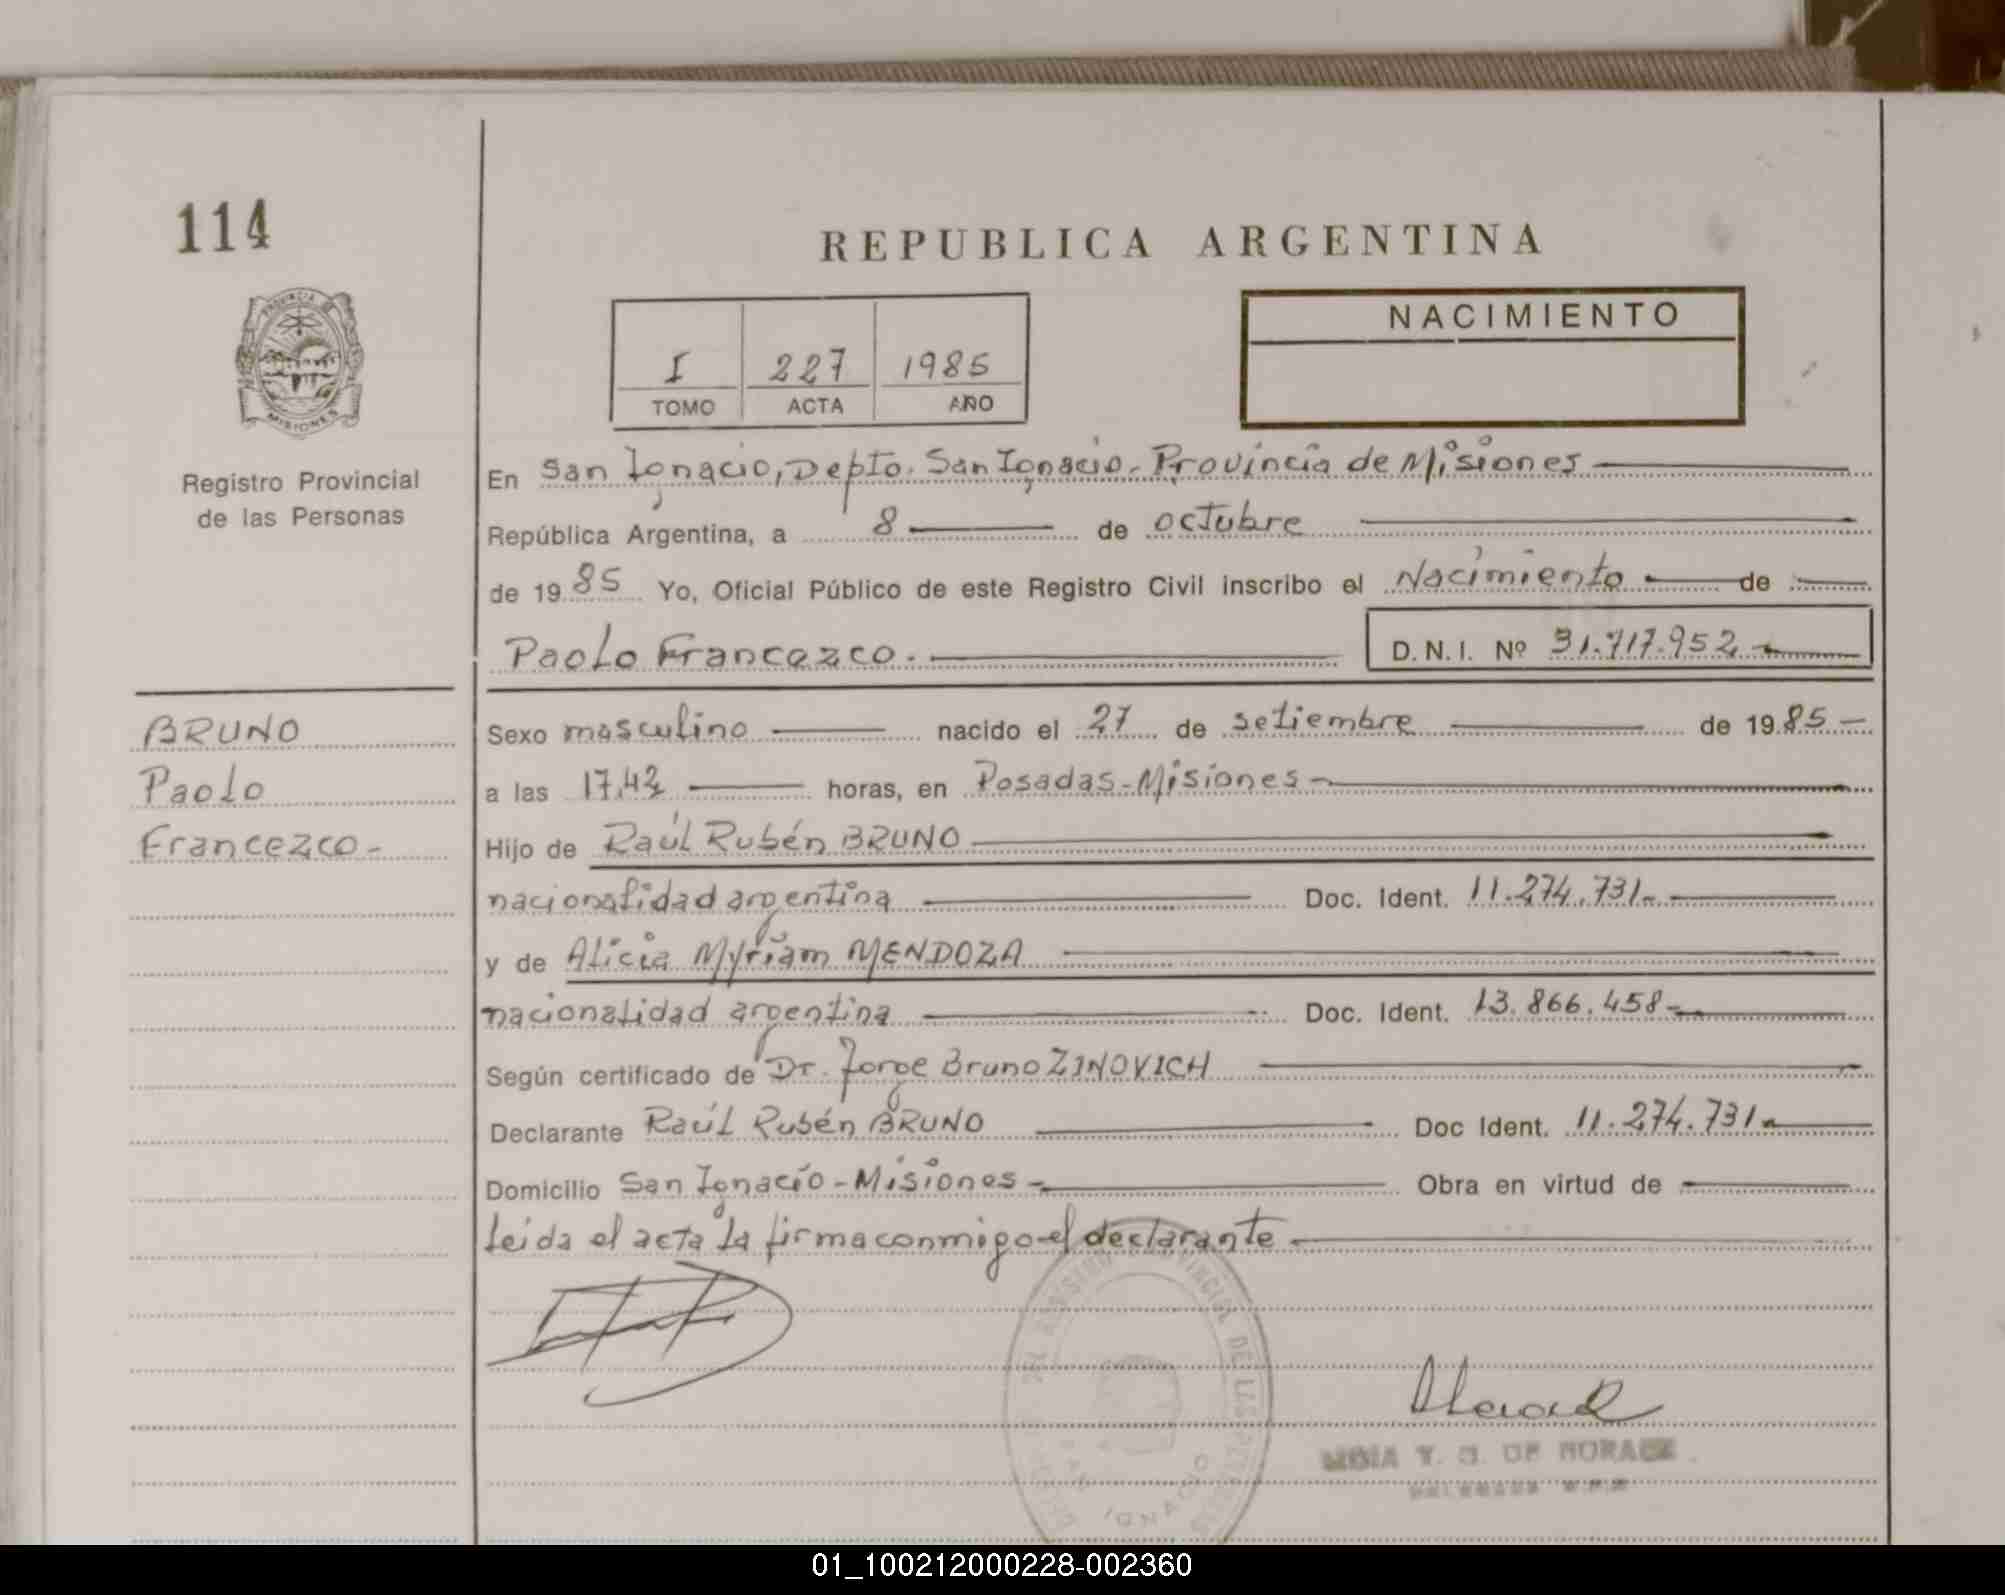 114
REPUBLICA ARGENTINA
PROVINCIA DE
MISIONES
Registro Provincial
de las Personas
NACIMIENTO
I 227 1985
TOMO ACTA AÑO
En San Ignacio, Depto. San Ignacio, Provincia de Misiones
República Argentina, a 8 de octubre
de 1985 Yo, Oficial Público de este Registro Civil inscribo el Nacimiento de
Paolo Francezco. D.N.I. Nº 31.717.952
BRUNO
Paolo
Francezco-
Sexo masculino nacido el 27 de setiembre de 1985
a las 17,43 horas, en Posadas-Misiones
Hijo de Raúl Rubén BRUNO
nacionalidad argentina Doc. Ident. 11.274.731
y de Alicia Myriam MENDOZA
nacionalidad argentina Doc. Ident. 13.866.458
Según certificado de Dr. Jorge Bruno ZINOVICH
Declarante Raúl Rubén BRUNO Doc Ident. 11.274.731
Domicilio San Ignacio-Misiones Obra en virtud de
Leida el acta la firma conmigo el declarante
PROVINCIAL DE LAS PERSONAS
SAN IGNACIO
Y. G. DE
01_100212000228-002360